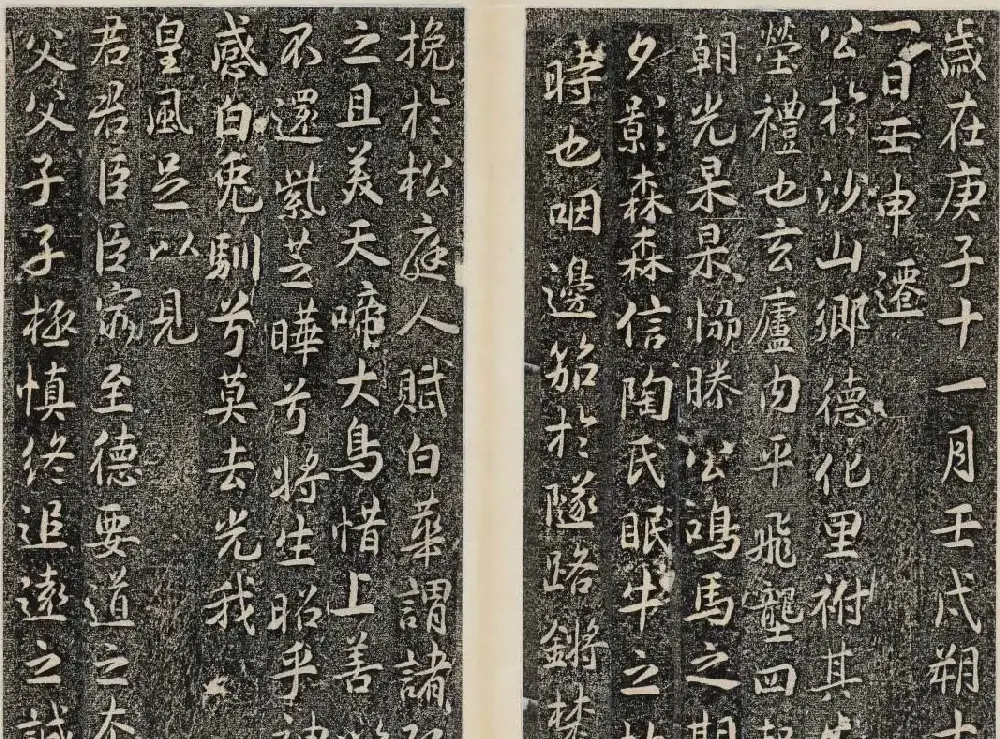 歲在庚子十一月壬戌朔十
一日壬申遷
公於沙山鄉德化里祔其先
塋禮也玄廬內平飛壟四
朝光杲杲協滕公鴻馬之期
夕影森森信陶氏眠牛之
時也咽邊笳於隧路鏘
挽於松庭人賦白華謂諸
之且美天啼大鳥惜上善
不還紫芝曄兮將生昭乎
感白兎馴兮莫去光我
皇風足以見
君君臣臣寂至德要道之本
父父子子極慎終追遠之誠